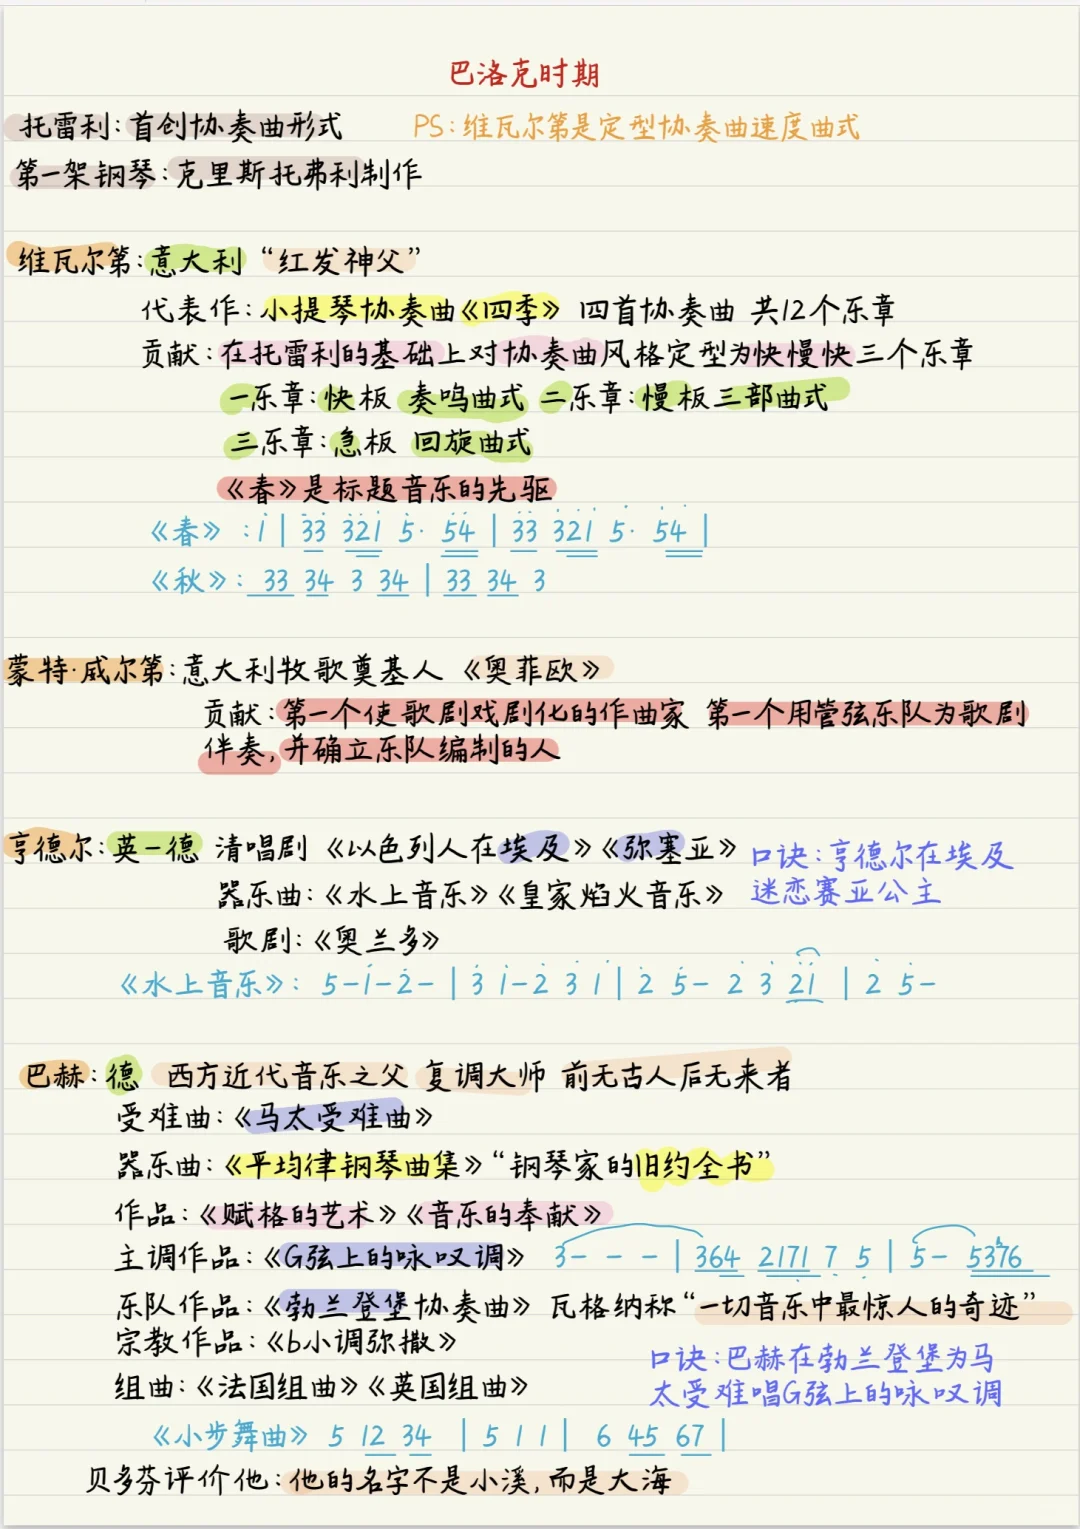 巴洛克时期
托雷利:首创协奏曲形式 PS:维瓦尔第是定型协奏曲速度曲式
第一架钢琴:克里斯托弗利制作
维瓦尔第:意大利 “红发神父”
代表作:小提琴协奏曲《四季》 四首协奏曲 共12个乐章
贡献:在托雷利的基础上对协奏曲风格定型为快慢快三个乐章
一乐章:快板 奏鸣曲式 二乐章:慢板三部曲式
三乐章:急板 回旋曲式
《春》是标题音乐的先驱
《春》:1 | 33 321 5· 54 | 33 321 5· 54 |
《秋》: 33 34 3 34 | 33 34 3
蒙特·威尔第:意大利牧歌奠基人 《奥菲欧》
贡献:第一个使歌剧戏剧化的作曲家 第一个用管弦乐队为歌剧
伴奏,并确立乐队编制的人
亨德尔:英一德 清唱剧 《以色列人在埃及》《弥塞亚》
口诀:亨德尔在埃及
迷恋赛亚公主
器乐曲:《水上音乐》《皇家焰火音乐》
歌剧:《奥兰多》
《水上音乐》: 5-1-2- | 3 1-2 3 1 | 2 5- 2 3 21 | 2 5-
巴赫:德 西方近代音乐之父 复调大师 前无古人后无来者
受难曲:《马太受难曲》
器乐曲:《平均律钢琴曲集》“钢琴家的旧约全书”
作品:《赋格的艺术》《音乐的奉献》
主调作品:《G弦上的咏叹调》 3- - - | 364 2171 7 5 | 5- 5376
乐队作品:《勃兰登堡协奏曲》 瓦格纳称“一切音乐中最惊人的奇迹”
宗教作品:《b小调弥撒》
组曲:《法国组曲》《英国组曲》
口诀:巴赫在勃兰登堡为马
太受难唱G弦上的咏叹调
《小步舞曲》 5 12 34 | 5 1 1 | 6 45 67 |
贝多芬评价他:他的名字不是小溪,而是大海